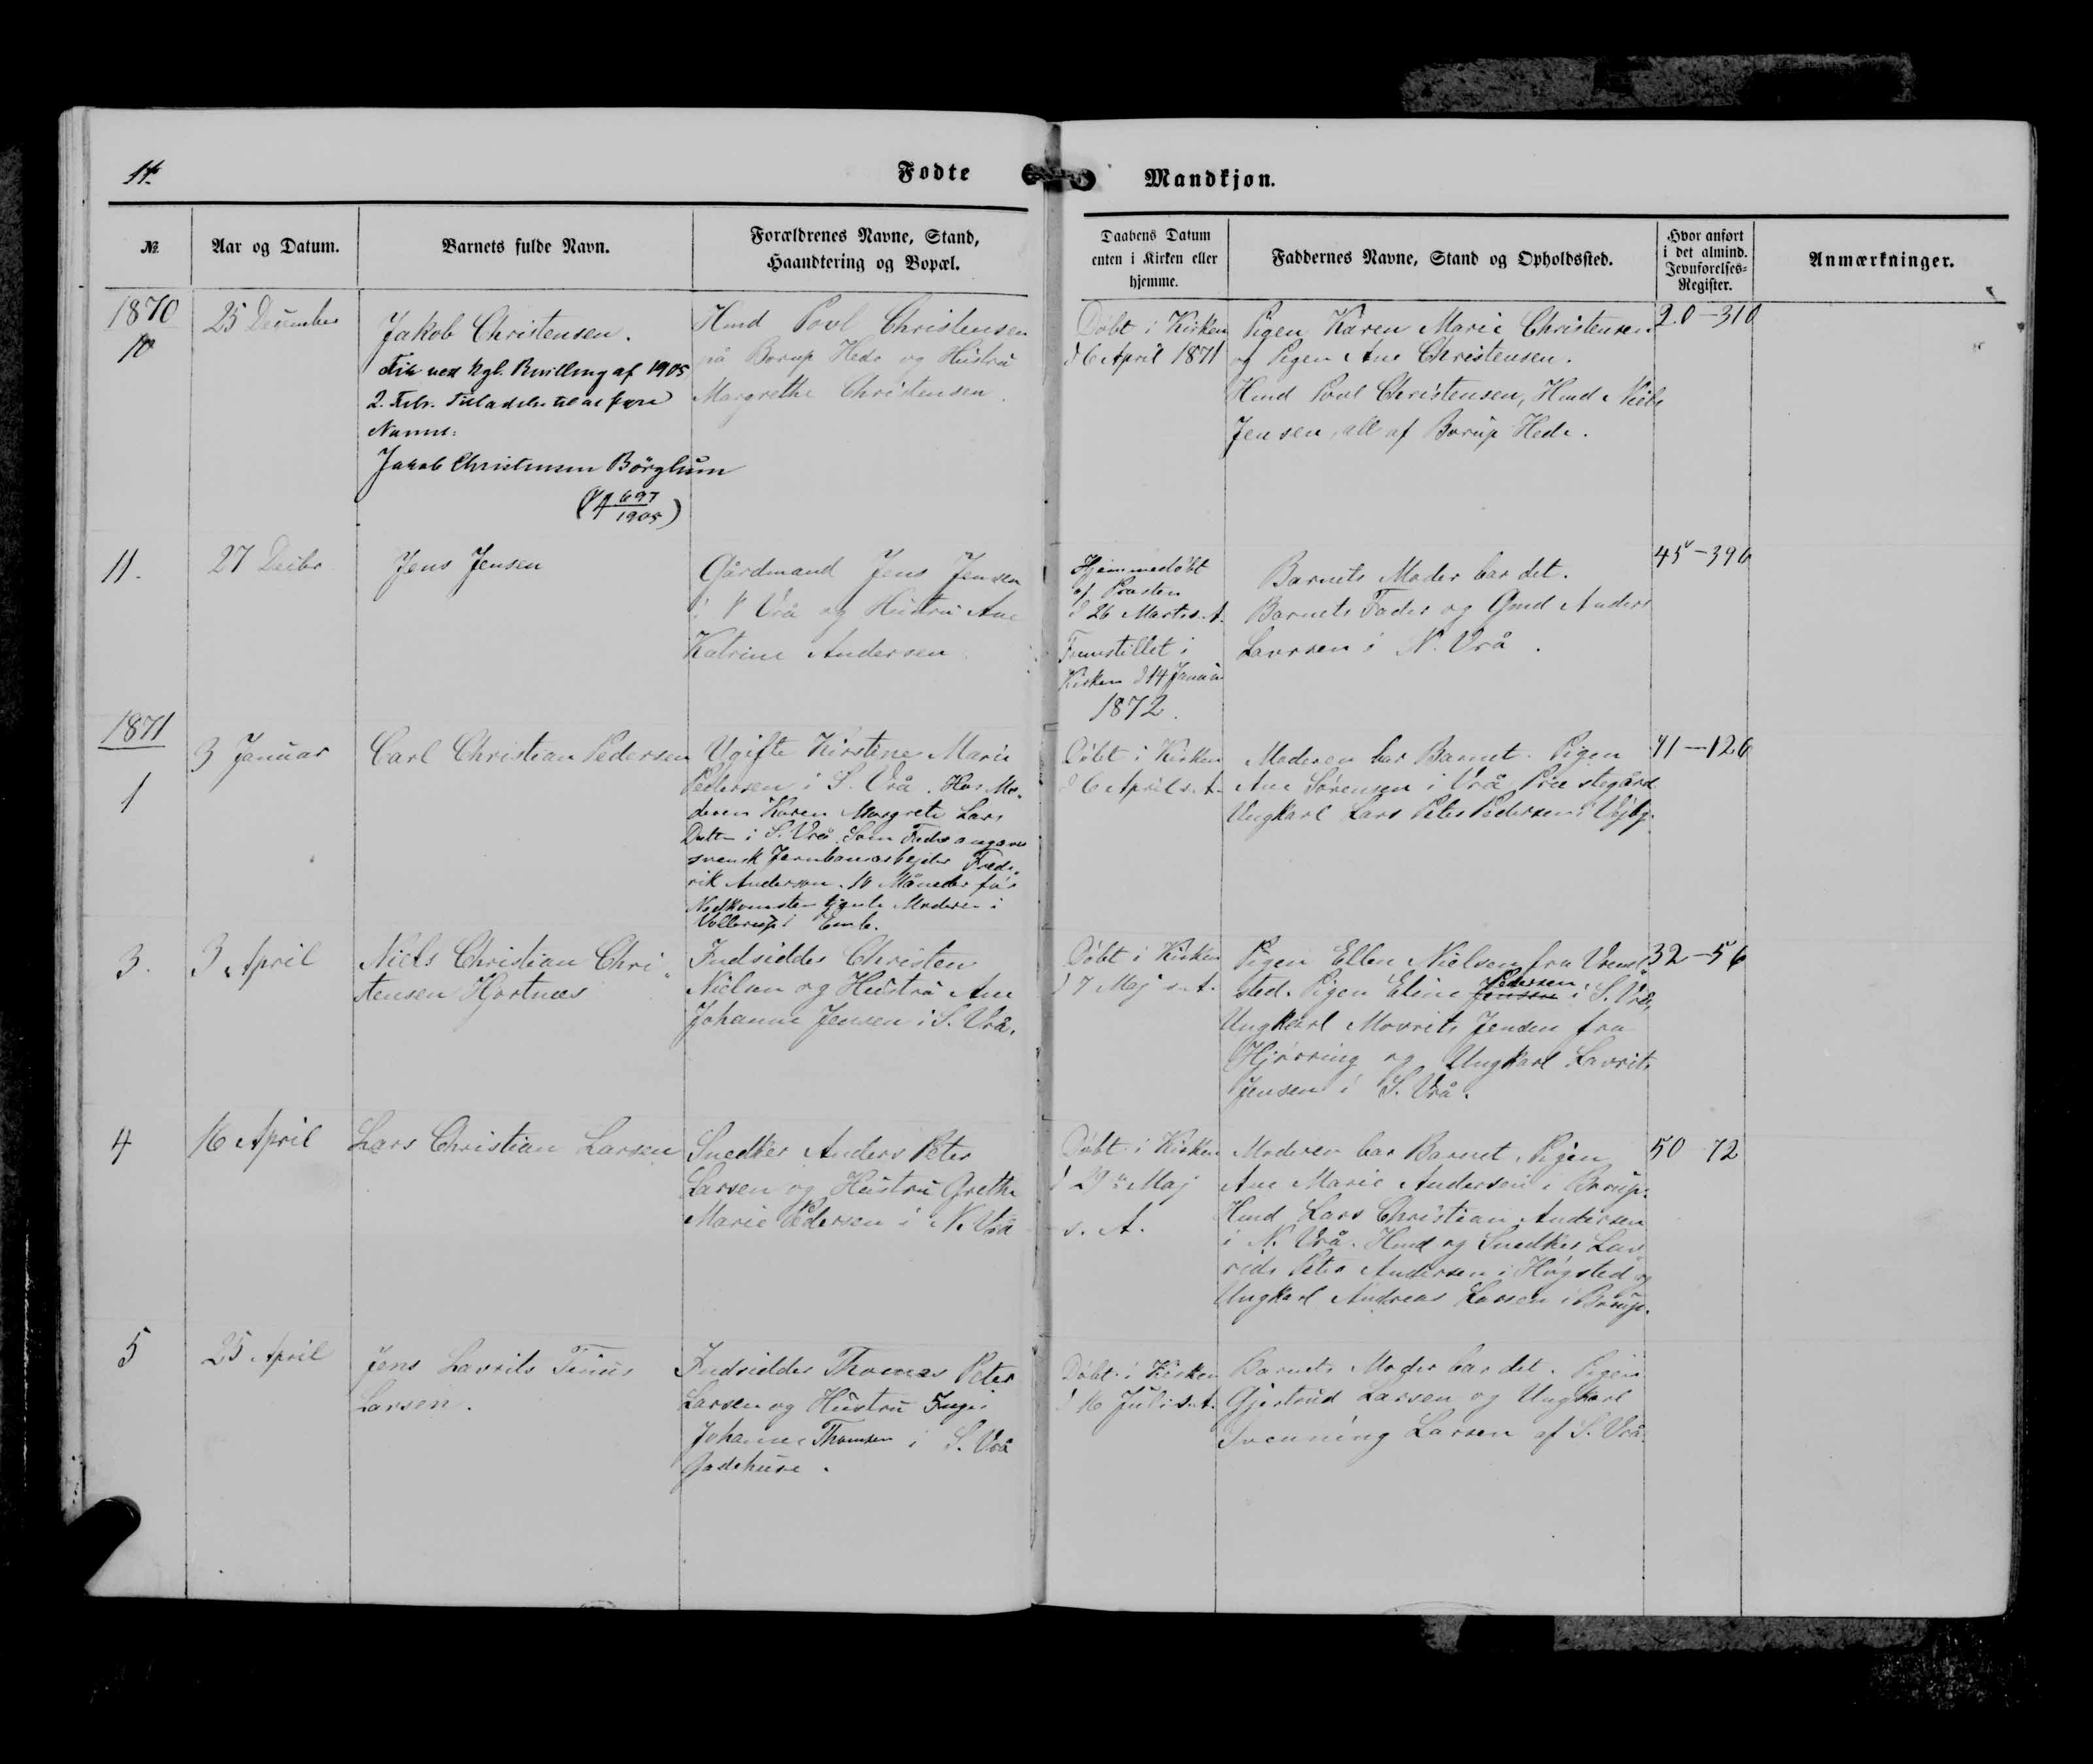 14.
Fødte
Mandkjøn.
№
Aar og Datum.
Barnets fulde Navn.
Forældrenes Navne, Stand,
Haandtering og Bopæl.
Daabens Datum
enten i Kirken eller
hjemme.
Faddernes Navne, Stand og Opholdssted.
Hvor anført
i det almind.
Jevnførelses-
Register.
Anmærkninger.
1870
10
25 December
Jakob Christensen.
Fik ved Kgl. Bevilling af 1905
2. Febr. Tilladelse til at føre
Navnet:
Jakob Christensen Börglum
697
1905)
Hmd Povl Christensen
på Borup Hede og Hustru
Margrethe Christensen.
Døbt i Kirken
d 6 April 1871
Pigen Karen Marie Christensen
og Pigen Ane Christensen.
Hmd Povl Christensen, Hmd Niels
Jensen, alle af Borup Hede.
20-310
11.
27 Decbr
Jens Jensen
Gårdmand Jens Jensen
i N Vrå og Hustru Ane
Katrine Andersen
Hjemmedøbt
af Præsten
d 26 Marts s. A.
Fremstillet i
Kirken d 14 Januar
1872.
Barnets Moder bar det.
Barnets Fader og Gmd Anders
Lavrsen i N. Vrå.
45-396
1871
1
3 Januar
Carl Christian Pedersen
Ugifte Kirstine Marie
Pedersen i S. Vrå. Hos Mo-
deren Karen Margrete Lars
Datter i S. Vrå. Som Fader angaves
svensk Jernbanearbejder Frede-
rik Anderson. 10 Måneder før
Nedkomsten tjente Moderen i
Vollerup i Emb.
Døbt i Kirken
d 6 April s. A.
Moderen bar Barnet. Pigen
Ane Sørensen i Vrå Præstegård
Ungkarl Lars Peter Pedersen i Vejby.
41-126
3.
3 April
Niels Christian Chri-
stensen Hjortnæs
Indsidder Christen
Nielsen og Hustru Ane
Johanne Jensen i S. Vrå.
Døbt i Kirken
d 7 Maj s. A.
Pigen Ellen Nielsen fra Vren-
sted. Pigen Eline Jensen Pedersen i S. Vrå,
Ungkarl Movrits Jensen fra
Hjørring og Ungkarl Lavrits
Jensen i S. Vrå.
32-56
4
16 April
Lars Christian Larsen
Snedker Anders Peter
Larsen og Hustru Grethe
Marie Pedersen i N. Vrå
Døbt i Kirken
d 29 Maj
s. A.
Moderen bar Barnet. Pigen
Ane Marie Andersen i Borup.
Hmd Lars Christian Andersen
i N. Vrå. Hmd og Snedker Lav-
rids Peter Andersen i Høgsted og
Ungkarl Andreas Larsen i Borup.
50 72
5
25 April
Jens Lavrits Tinus
Larsen.
Indsidder Thomas Peter
Larsen og Hustru Inger
Johanne Thomsen i S. Vrå
Gadehuse.
Døbt i Kirken
d 16 Juli s. A.
Barnets Moder bar det. Pigen
Gjertrud Larsen og Ungkarl
Svenning Larsen af S. Vrå.